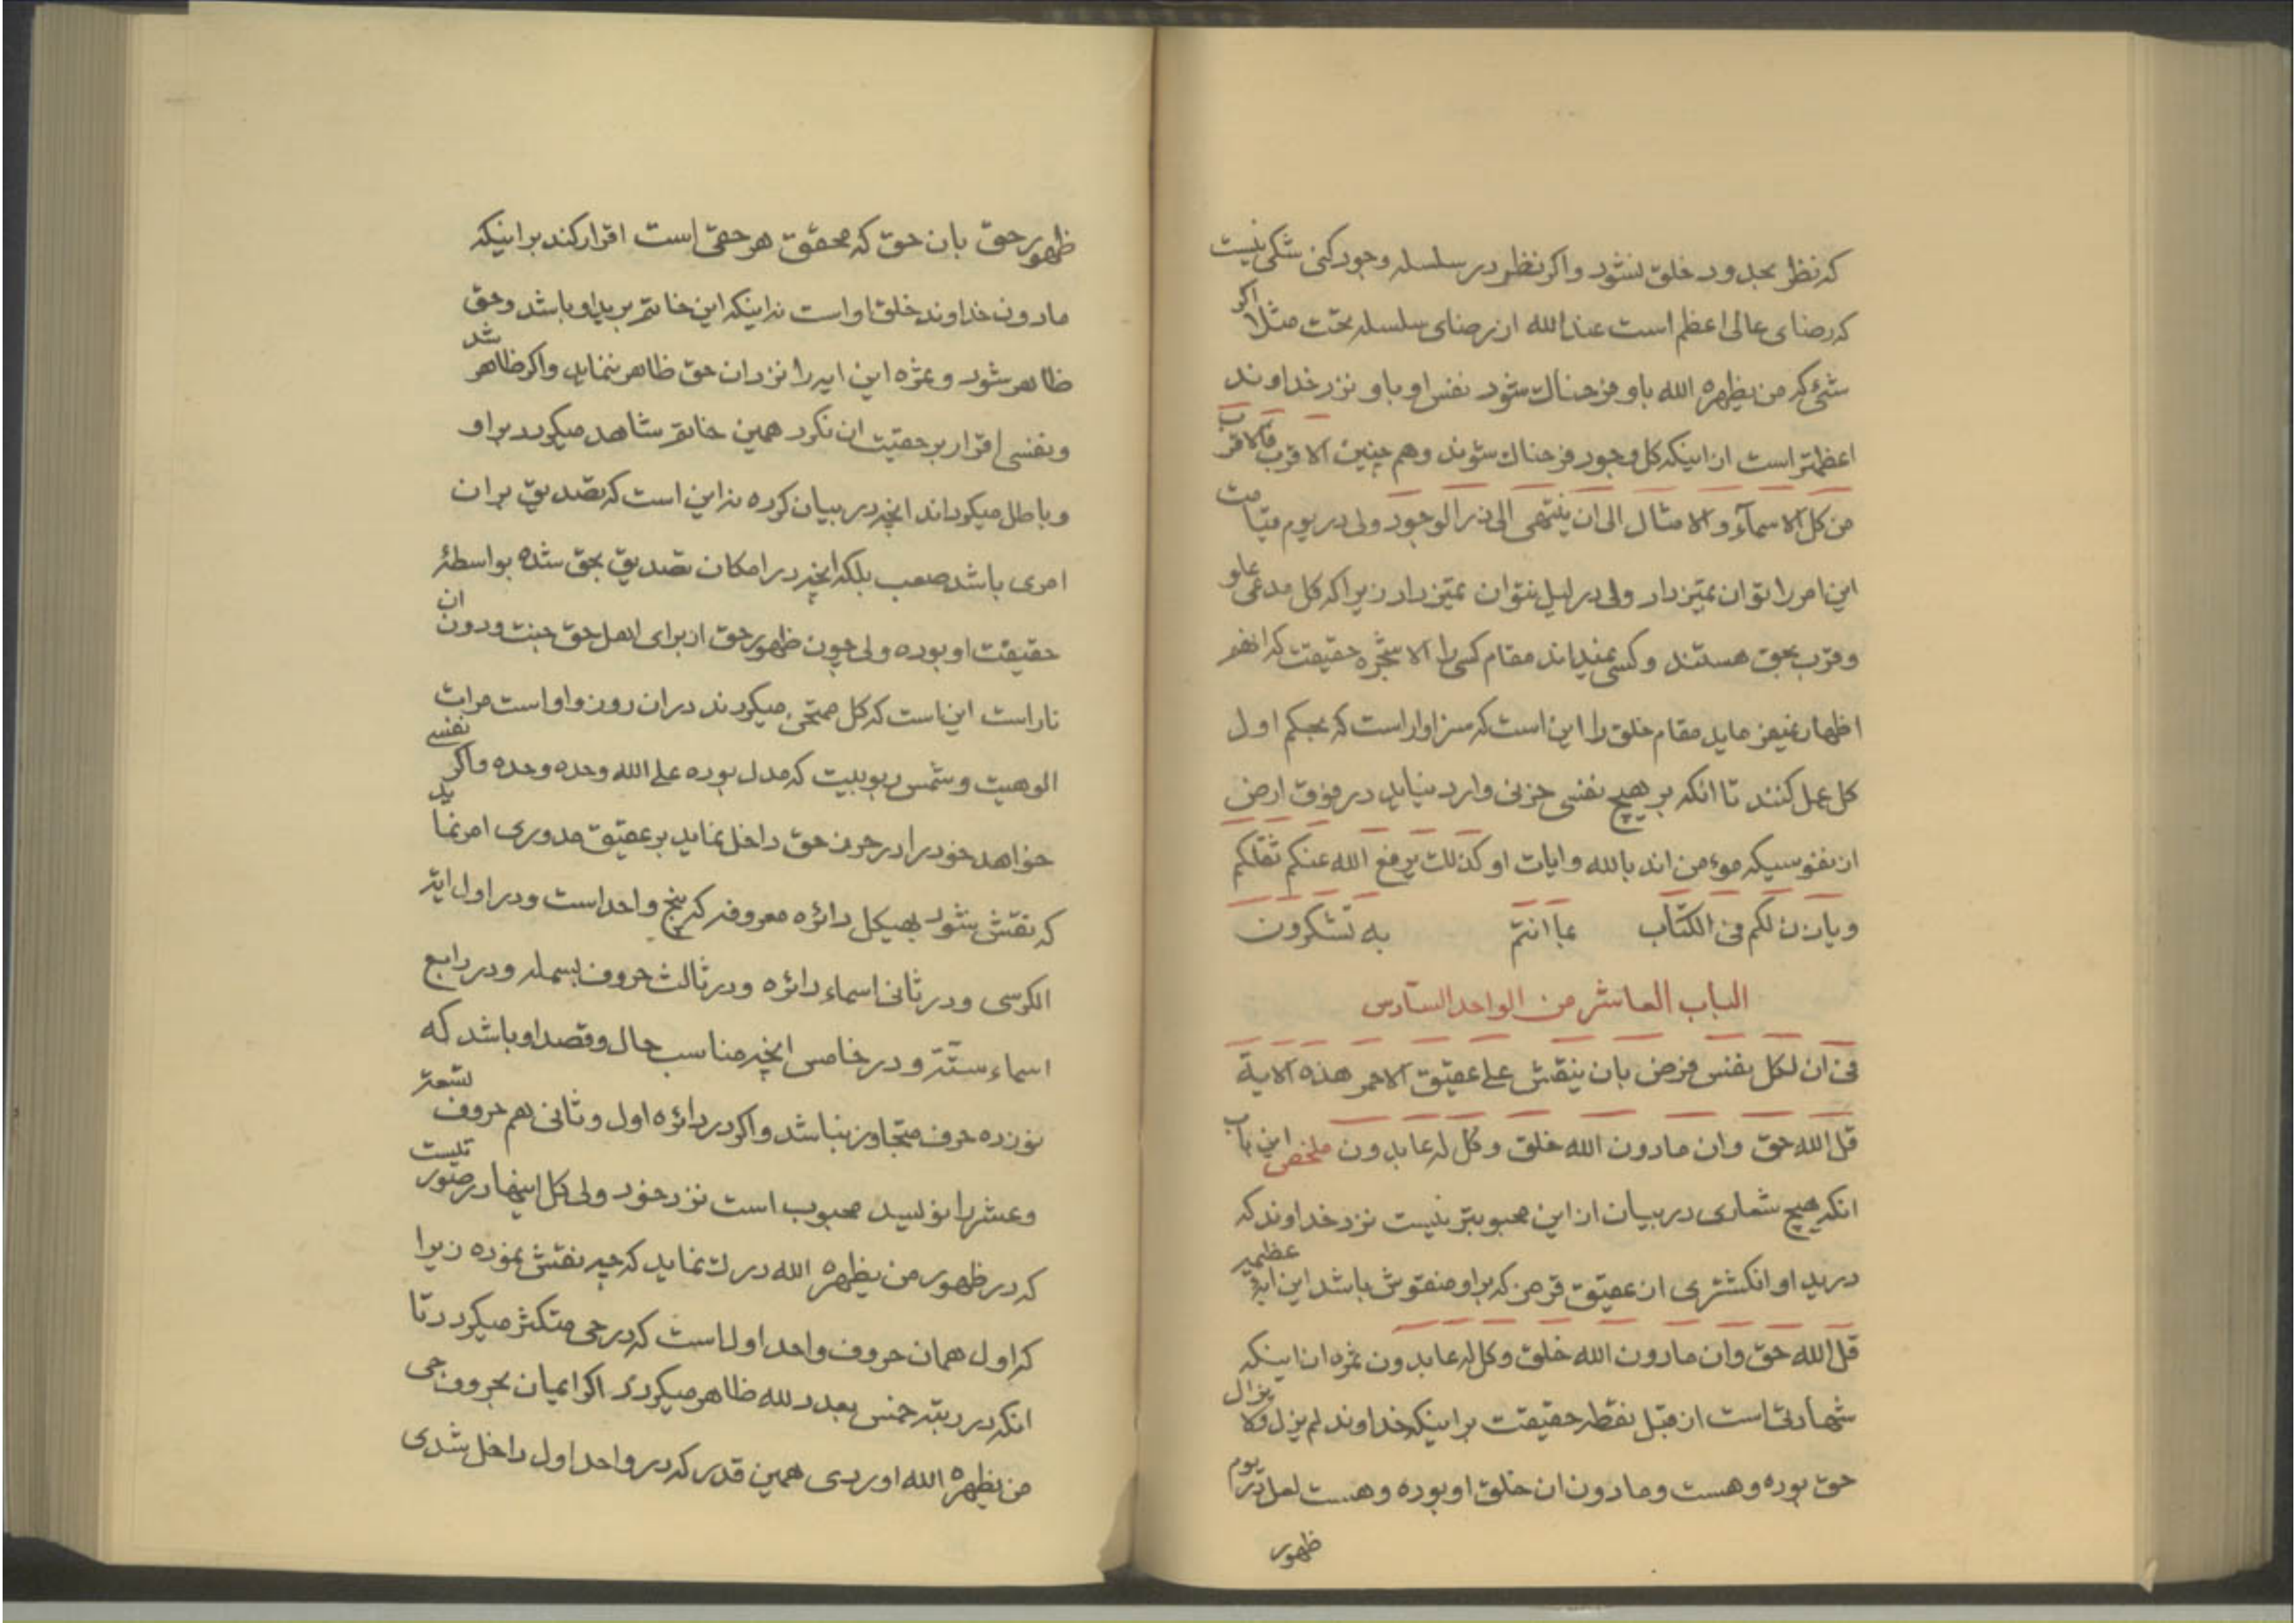 که نظر بحدود خلق نشود و اکر نظر در سلسله وجود کنی شکی نیست
که رضای عالی اعظم است عند الله از رضای سلسله تحت مثلا اکر
شیئ که من یظهره الله باو فرحناک شود نفس او باو نزد خداوند
اعظمتر است از اینکه کل وجود فرحناک شوند و هم چنین الاقرب فالاقرب
من کل الاسمآء و الامثال الی ان ینتهی الی ذر الوجود ولی در یوم قیامت
این امر را توان تمیز داد ولی در لیل نتوان تمیز داد زیرا که کل مدعی علو
و قرب بحق هستند و کسی نمیداند مقام کسی را الا شجره حقیقت که انهم
اظهار نمیفرماید مقام خلق را این است که سزاوار است که بحکم اول
کل عمل کنند تا انکه بر هیچ نفسی حزنی وارد نیاید در فوق ارض
از نفوسیکه موءمن اند بالله و ایات او کذلک یرفع الله عنکم ثقلکم
و یاذن لکم فی الکتاب عما انتم به تشکرون
الباب العاشر من الواحد السادس
فی ان لکل نفس فرض بان ینقش علی عقیق الاحمر هذه الایة
قل الله حق و ان مادون الله خلق و کل له عابدون ملخص این باب
انکه هیچ شعاری در بیان از این محبوبتر نیست نزد خداوند که
در ید او انکشتری از عقیق قرمز که بر او منقوش باشد این ایه عظیمه
قل الله حق و ان مادون الله خلق و کل له عابدون ثمره ان اینکه
شهادتی است از قبل نقطه حقیقت بر اینکه خداوند لم یزل و لا یزال
حق بوده و هست و مادون ان خلق او بوده و هست لعل در یوم
ظهور
ظهور حق بان حق که محقق هر حقی است اقرار کند بر اینکه
مادون خداوند خلق او است نه اینکه این خاتم بر ید او باشد و حق
ظاهر شود و ثمره این ایه را نزد ان حق ظاهر ننماید و اکر ظاهر شد
و نفسی اقرار بر حقیت ان نکرد همین خاتم شاهد میکردد بر او
و باطل میکرداند انچه در بیان کرده نه این است که تصدیق بر ان
امری باشد صعب بلکه انچه در امکان تصدیق بحق شده بواسطهٔ
حقیقت او بوده ولی چون ظهور حق از برای اهل حق جنت و دون ان
نار است این است که کل ممتحن میکردند در ان روز و او است مرات
الوهیت و شمس ربوبیت که مدل بوده علی الله وحده وحده و اکر نفسی
خواهد خود را در حرز حق داخل نماید بر عقیق مدوری امر نماید
که نقش شود بهیکل دائره معروفه که پنج واحد است و در اول ایة
الکرسی و در ثانی اسماء دائره و در ثالث حروف بسمله و در رابع
اسماء ستّه و در خامس انچه مناسب حال و قصد او باشد که
نوزده حرف متجاوز نباشد و اکر در دائره اول و ثانی هم حروف تسعة
و عشر را نویسد محبوب است نزد خود ولی کل اینها در صور نیست
که در ظهور من یظهره الله درک نماید که چه نقش نموده زیرا
که اول همان حروف واحد اول است که در حی متکثر میکردد تا
انکه در رتبه خمس بعدد لله ظاهر میکردد اکر ایمان بحروف حی
من یظهره الله اوردی همین قدر که در واحد اول داخل شدی